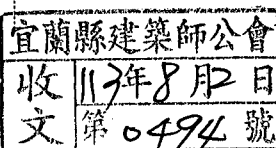 宜蘭縣建築師公會
收文
113年8月2日
第0494號